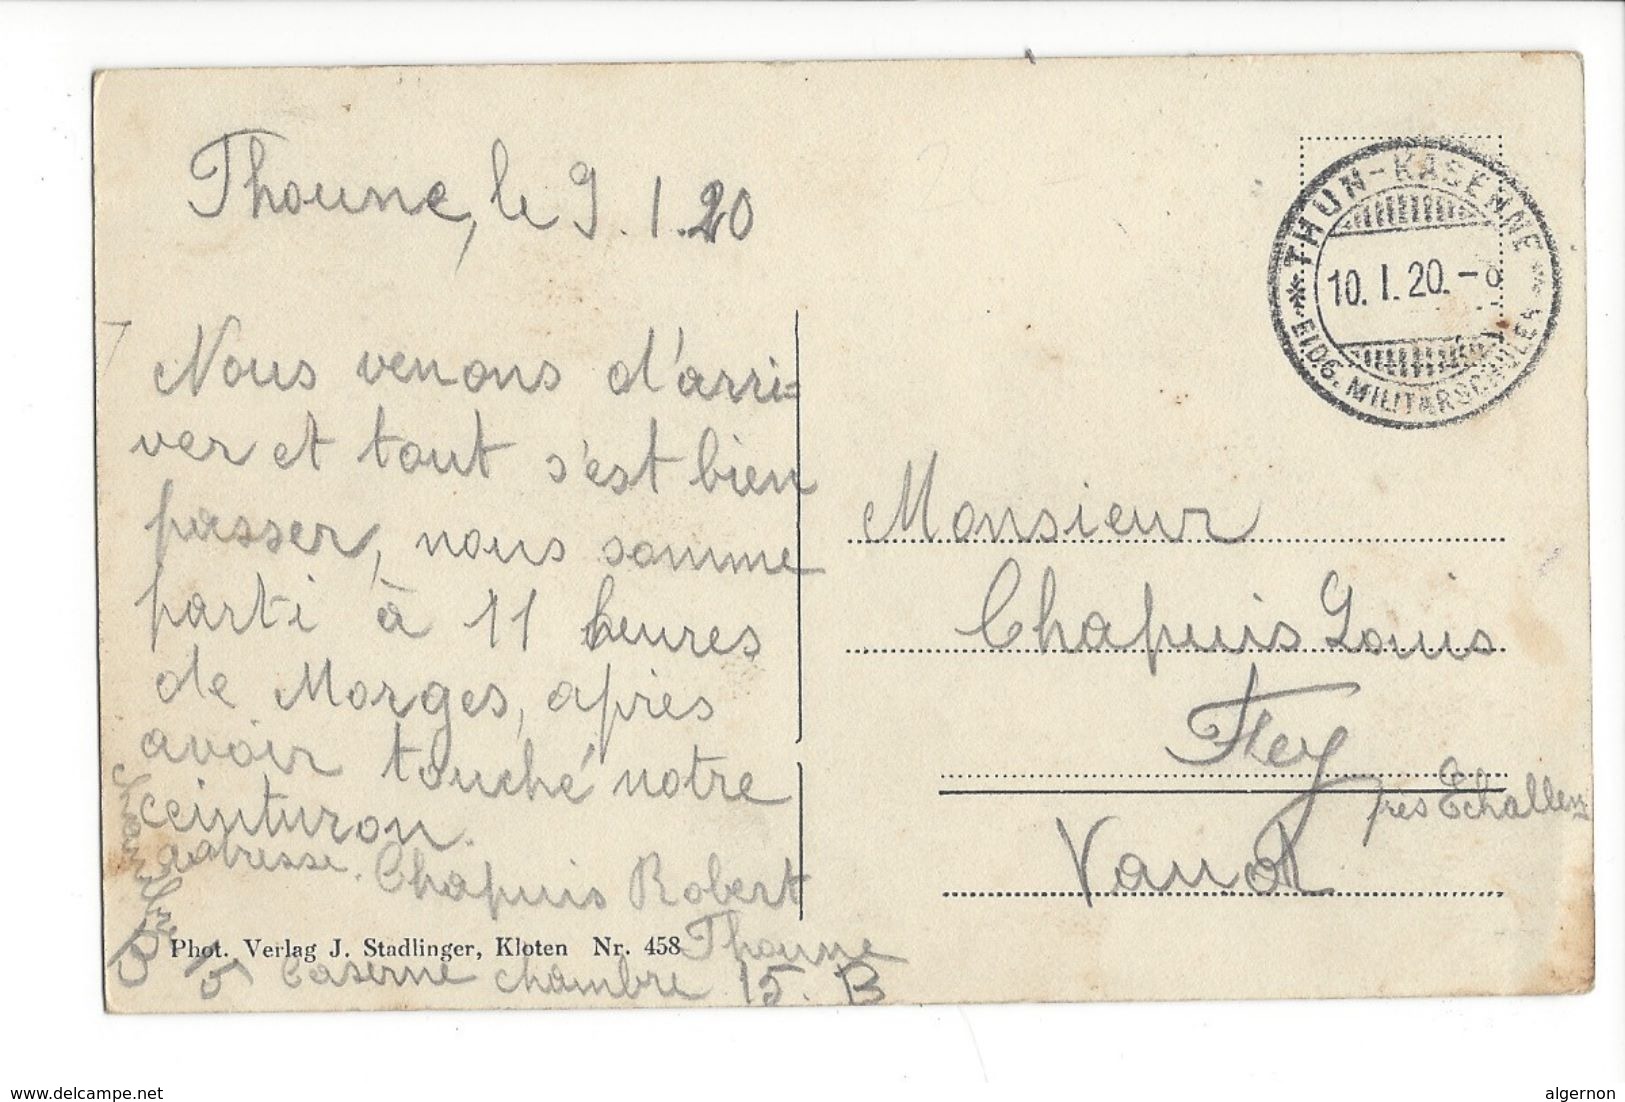 Thoune, le 9.1.20
Nous venons d'arri=
ver et tout s'est bien
passer, nous somme
parti à 11 heures
de Morges, après
avoir touché notre
ceinturon.
adresse. Chapuis Robert
Thoune
Caserne chambre 15. B
15
Phot. Verlag J. Stadlinger, Kloten Nr. 458
THUN-KASERNE
10. I. 20. -8
EIDG. MILITÄRSCHULEN
Monsieur
Chapuis Louis
Fey
Près Echallens
Vaud
www.delcampe.net
algernon